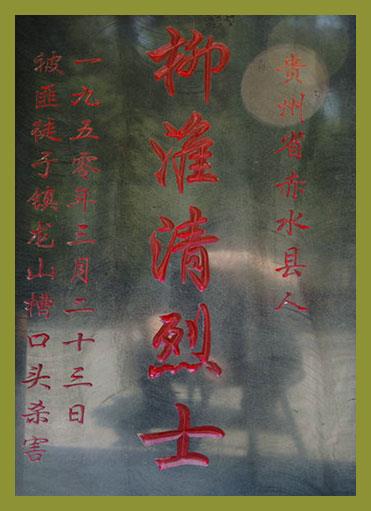 贵州省赤水县人
柳淮清烈士
一九五零年三月二十三日
被匪徒子镇龙山槽口头杀害